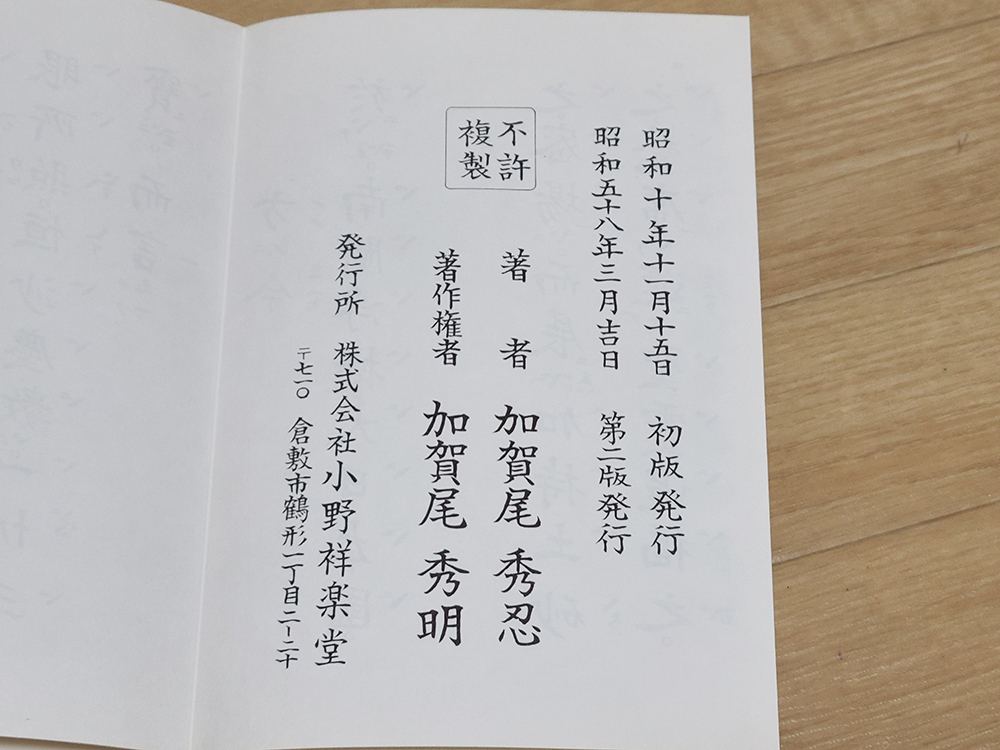 昭和十年十一月十五日　初版発行
昭和五十八年三月吉日　第二版発行
不許
複製
著者　加賀尾秀忍
著作権者　加賀尾秀明
発行所　株式会社小野祥楽堂
〒七一〇　倉敷市鶴形一丁目二ー二十